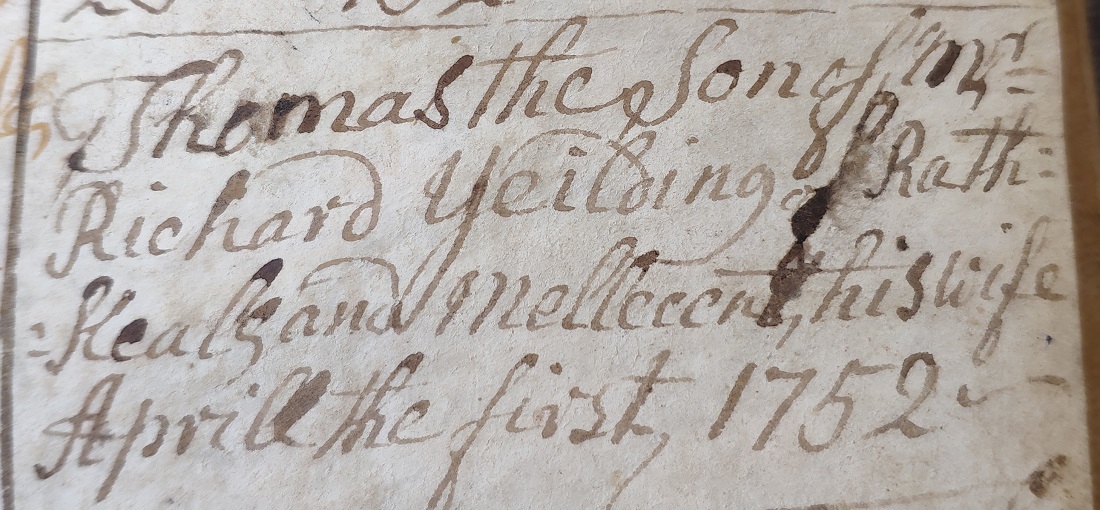 Thomas the Son of Mr=
Richard Yeilding of Rath=
=Kealy and Mellecent, his wife
Aprill the first, 1752